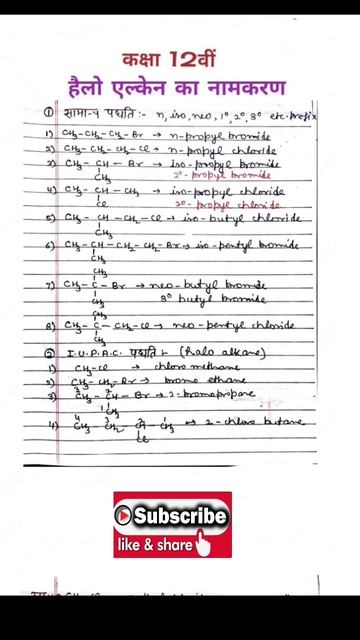 कक्षा 12वीं
हैलो एल्केन का नामकरण
① सामान्य पद्धति :- n, iso, neo, 1°, 2°, 3° etc. prefix
1) CH₃-CH₂-CH₂-Br → n-propyl bromide
2) CH₃-CH₂-CH₂-Cl → n-propyl chloride
3) CH₃-CH-Br → iso-propyl bromide
CH₃ 2°-propyl bromide
4) CH₃-CH-CH₃ → iso-propyl chloride
Cl 2°-propyl chloride
5) CH₃-CH-CH₂-Cl → iso-butyl chloride
CH₃
6) CH₃-CH-CH₂-CH₂-Br → iso-pentyl bromide
CH₃
CH₃
7) CH₃-C-Br → neo-butyl bromide
CH₃ 3° butyl bromide
CH₃
8) CH₃-C-CH₂-Cl → neo-pentyl chloride
CH₃
② I.U.P.A.C. पद्धति :- (Halo alkane)
1) CH₃-Cl → chloro methane
2) CH₃-CH₂-Br → bromo ethane
3) ³CH₃-²CH-Br → 2-bromopropane
¹CH₃
4) ⁴CH₃-³CH₂-²CH-¹CH₃ → 2-chloro butane
Cl
Subscribe
like & share